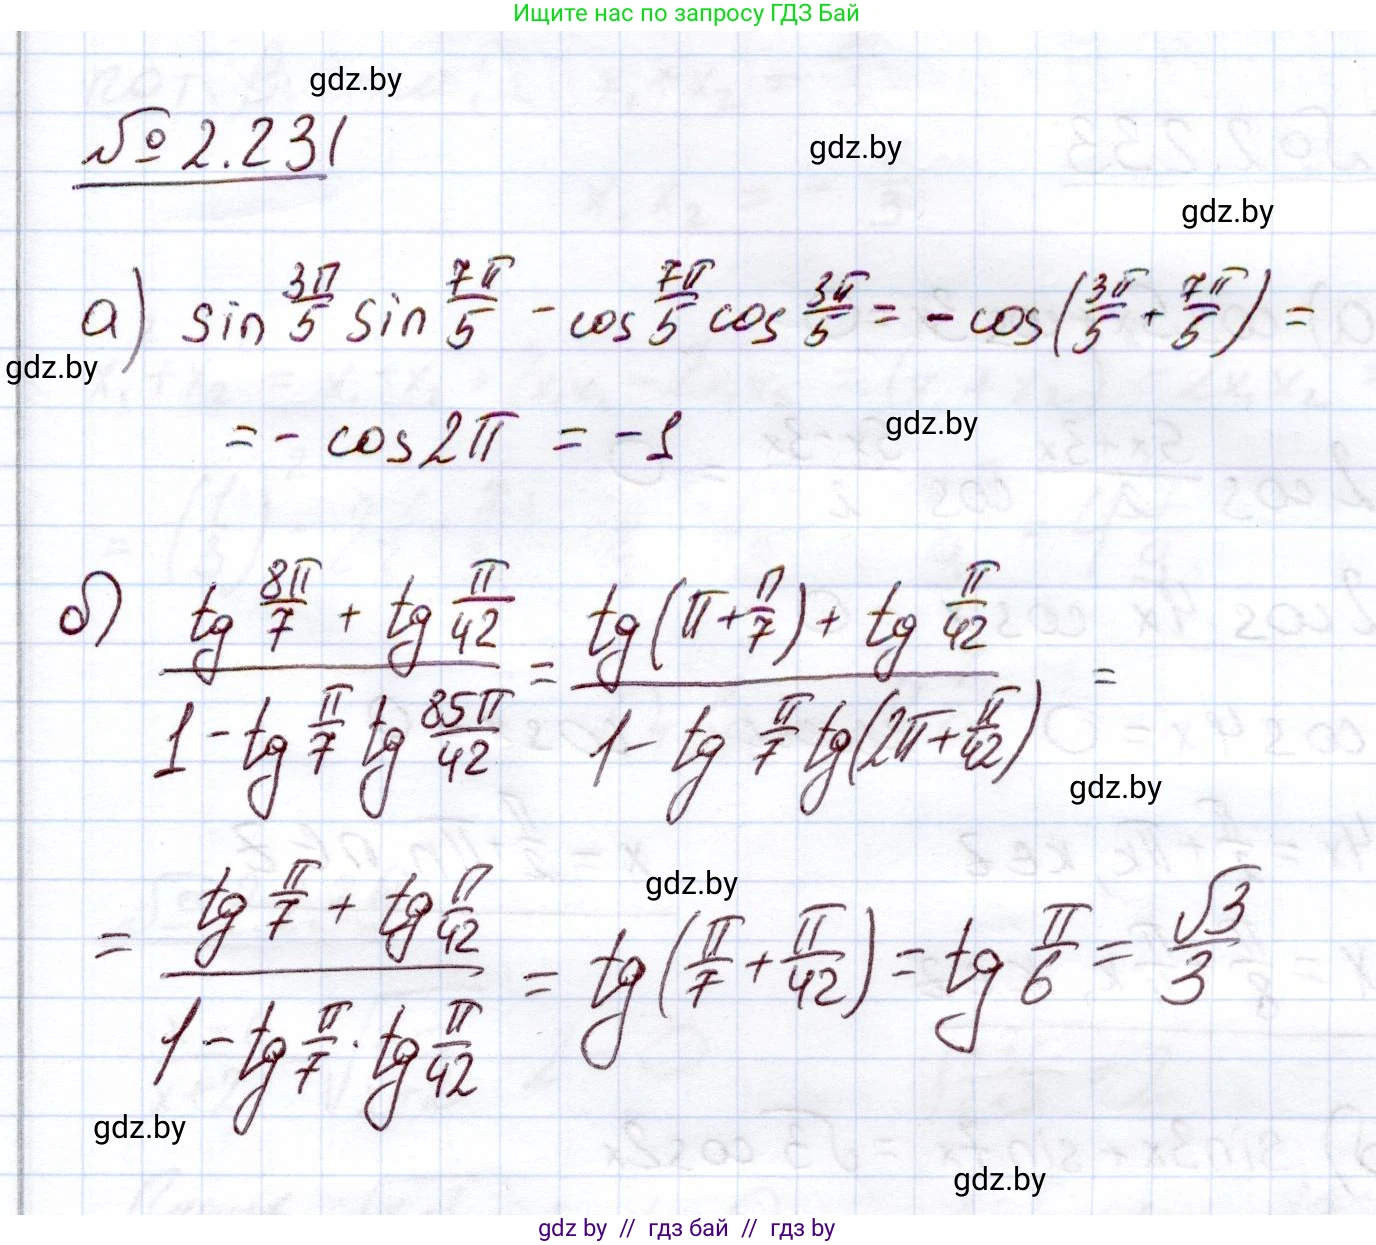 Ищите нас по запросу ГДЗ Бай
gdz.by
№ 2.231
gdz.by
gdz.by
а) sin 3π/5 sin 7π/5 - cos 7π/5 cos 3π/5 = - cos(3π/5 + 7π/5) =
gdz.by
= - cos 2π = -1
gdz.by
б) (tg 8π/7 + tg π/42)/(1 - tg π/7 tg 85π/42) = (tg(π + π/7) + tg π/42)/(1 - tg π/7 tg(2π + π/42)) =
gdz.by
= (tg π/7 + tg π/42)/(1 - tg π/7 · tg π/42) = tg(π/7 + π/42) = tg π/6 = √3/3
gdz.by
gdz.by
gdz.by
gdz by // гдз бай // гдз by